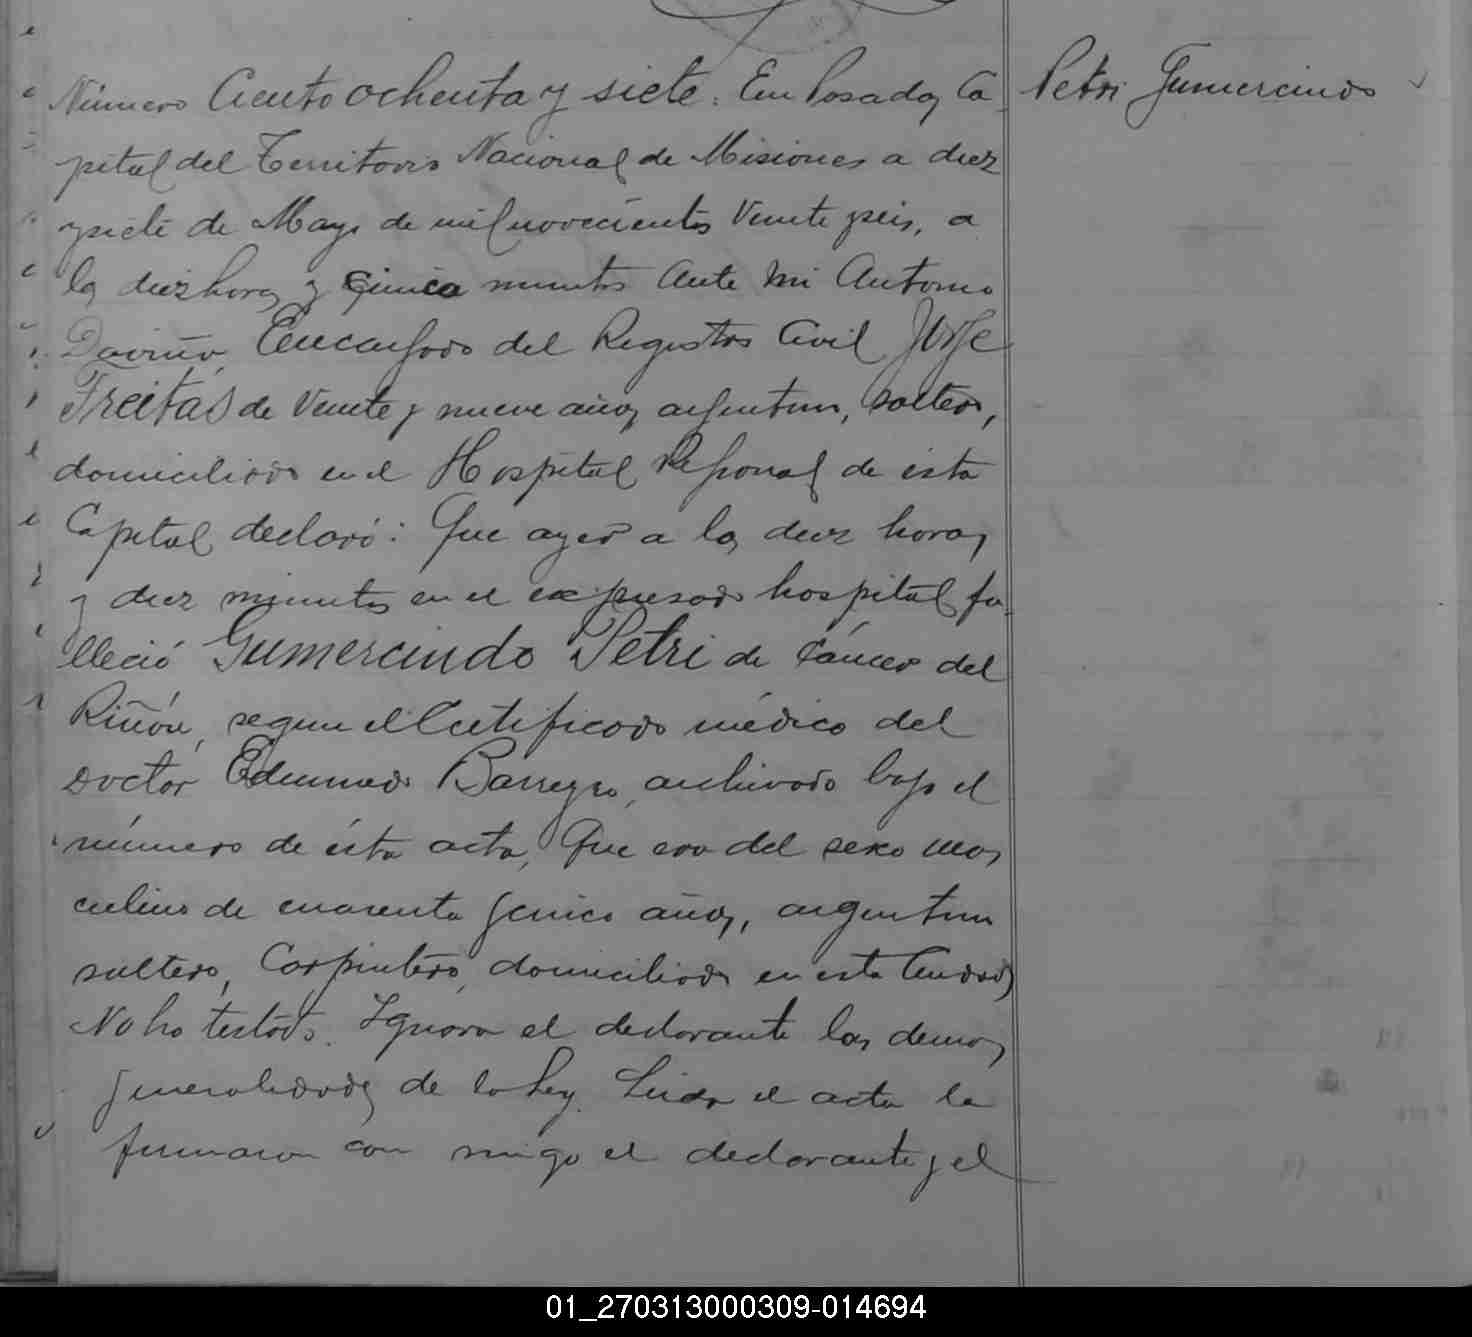 Número Ciento ochenta y siete. En Posadas Ca
pital del Territorio Nacional de Misiones a diez
y siete de Mayo de mil novecientos veinte y seis, a
las diez horas y cinco minutos ante mi Antonio
Encargado del Registro Civil Jorge
Freitas de veinte y nueve años, argentino, soltero,
domiciliado en el Hospital Regional de ésta
Capital declaró: Que ayer a las diez horas
y diez minutos en el expresado hospital fa
lleció Gumercindo Petri de cáncer del
Riñón, segun el Certificado médico del
Doctor Edmundo Barreyro, archivado bajo el
número de ésta acta, Que era del sexo mas
culino de cuarenta y cinco años, argentino
soltero, Carpintero, domiciliado en esta Ciudad
No ha testado. Ignora el declarante las demas
generalidades de la Ley. Leida el acta la
firmaron con migo el declarante y el
Petri Gumercindo
01_270313000309-014694